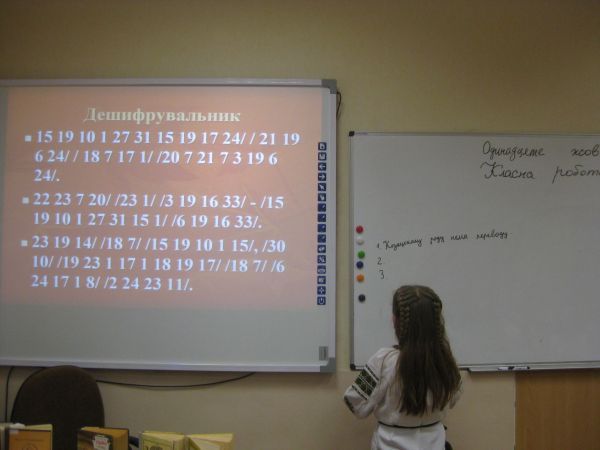 Дешифрувальник
15 19 10 1 27 31 15 19 17 24/ / 21 19
6 24/ / 18 7 17 1/ /20 7 21 7 3 19 6
24/.
22 23 7 20/ /23 1/ /3 19 16 33/ - /15
19 10 1 27 31 15 1/ /6 19 16 33/.
23 19 14/ /18 7/ /15 19 10 1 15/, /30
10/ /19 23 1 17 1 18 19 17/ /18 7/ /6
24 17 1 8/ /2 24 23 11/.
Одинадцяте
Класна робота
1. Козацькому роду нема переводу.
2.
3.